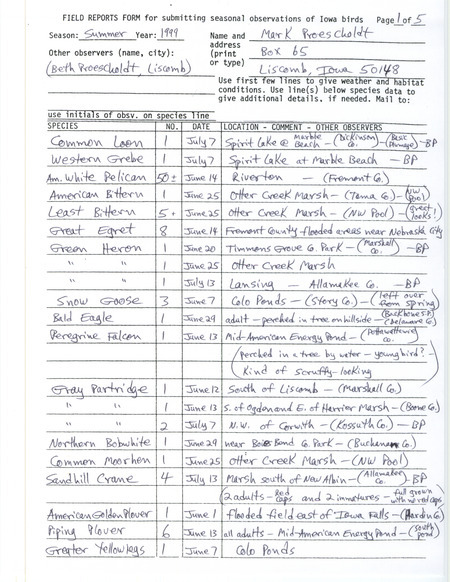 FIELD REPORTS FORM for submitting seasonal observations of Iowa birds Page 1 of 5
Season: Summer Year: 1999 Name and Mark Proescholdt
address
Other observers (name, city): (print Box 65
(Beth Proescholdt, Liscomb) or type) Liscomb, Iowa 50148
Use first few lines to give weather and habitat
conditions. Use line(s) below species data to
give additional details, if needed. Mail to:
use initials of obsv. on species line
SPECIES NO. DATE LOCATION - COMMENT - OTHER OBSERVERS
Common Loon 1 July 7 Spirit Lake @ Marble Beach - (Dickinson Co.) (Basic Plumage) - BP
Western Grebe 1 July 7 Spirit Lake at Marble Beach - BP
Am. White Pelican 50± June 14 Riverton - (Fremont Co.)
American Bittern 1 June 25 Otter Creek Marsh - (Tama Co.) - (NW Pool)
Least Bittern 5+ June 25 Otter Creek Marsh - (NW Pool) - (great looks!)
Great Egret 8 June 14 Fremont County flooded areas near Nebraska City
Green Heron 1 June 20 Timmons Grove Co. Park - (Marshall Co.) - BP
" " 1 June 25 Otter Creek Marsh
" " 1 July 13 Lansing - Allamakee Co. - BP
Snow Goose 3 June 7 Colo Ponds - (Story Co.) - (left over from spring)
Bald Eagle 1 June 29 adult - perched in tree on hillside - (Backbone S.P.) (Delaware Co.)
Peregrine Falcon 1 June 13 Mid-American Energy Pond - (Pottawattamie Co.)
(Perched in a tree by water - young bird? -
Kind of scruffy-looking)
Gray Partridge 1 June 12 South of Liscomb - (Marshall Co.)
" " 1 June 13 S. of Ogden and E. of Harrier Marsh - (Boone Co.)
" " 2 July 7 N.W. of Corwith - (Kossuth Co.) - BP
Northern Bobwhite 1 June 29 near Boies Bend Co. Park - (Buchanan Co.)
Common Moorhen 1 June 25 Otter Creek Marsh - (NW Pool)
Sandhill Crane 4 July 13 Marsh south of New Albin - (Allamakee Co.) - BP
(2 adults - Red caps and 2 immatures - full grown with no red caps)
American Golden Plover 1 June 1 flooded field east of Iowa Falls - (Hardin Co.)
Piping Plover 6 June 13 all adults - Mid-American Energy Pond - (south pond)
Greater Yellowlegs 1 June 7 Colo Ponds